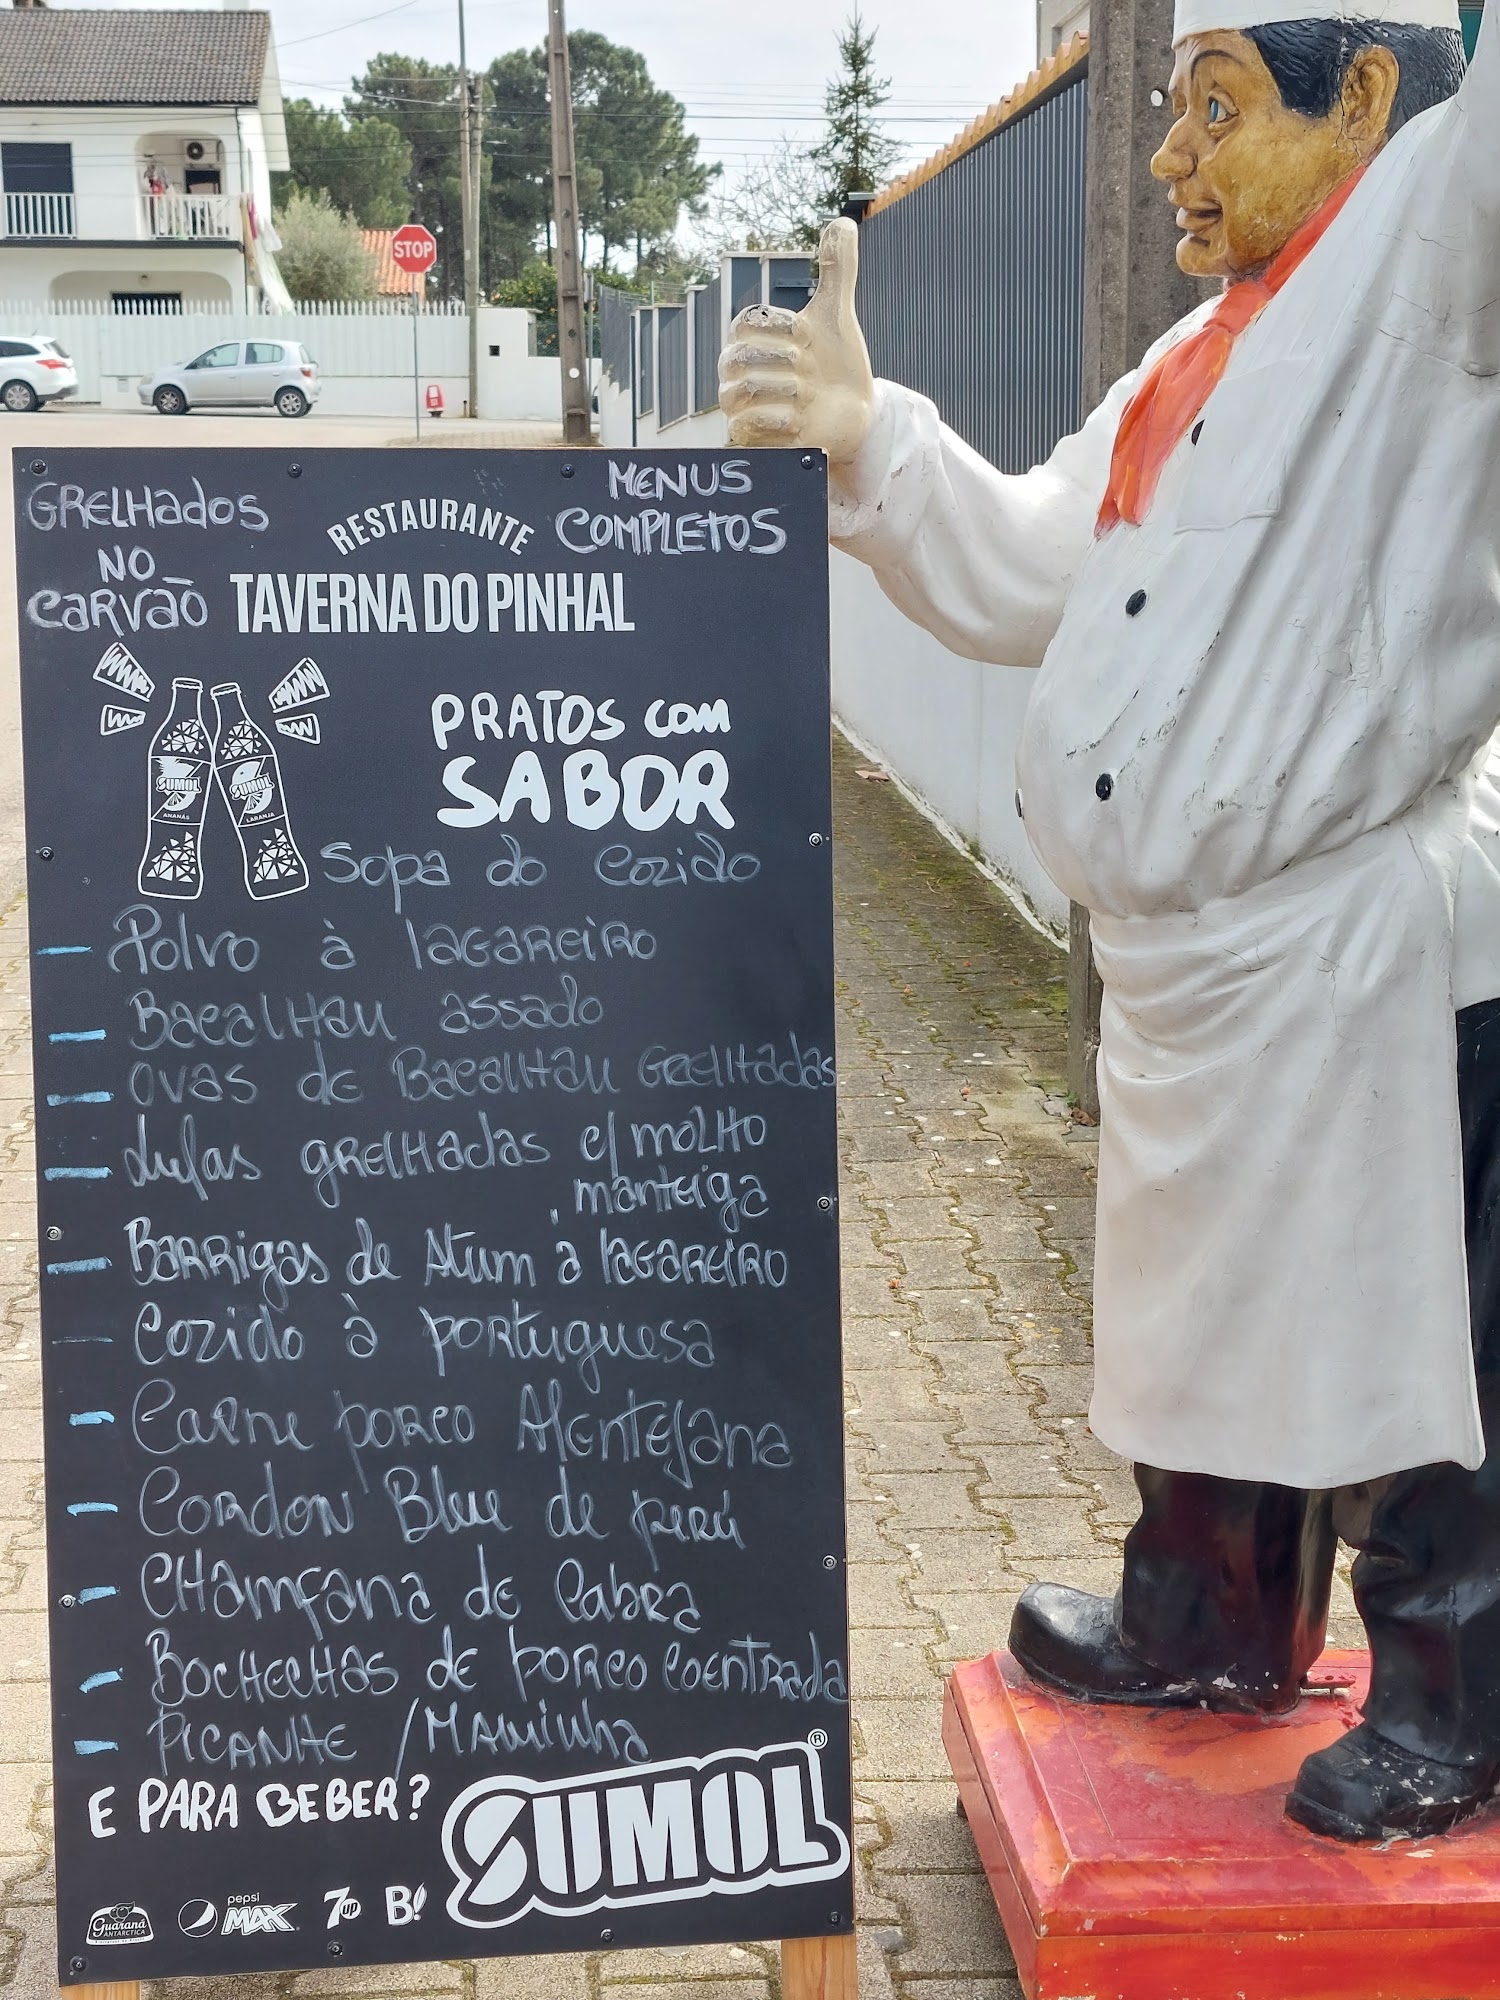 STOP
GRELHADOS
NO
CARVÃO
MENUS
COMPLETOS
RESTAURANTE
TAVERNA DO PINHAL
PRATOS COM
SABOR
SUMOL
ANANÁS
SUMOL
LARANJA
Sopa do Cozido
- Polvo à lagareiro
- Bacalhau assado
- Ovas de Bacalhau Grelhadas
- Lulas grelhadas c/ molho
manteiga
- Barrigas de Atum à lagareiro
- Cozido à portuguesa
- Carne porco Alentejana
- Cordon Bleu de perú
- Chamfana de Cabra
- Bochechas de porco Coentrada
- Picanhe / Maminha
E PARA BEBER?
SUMOL®
Guaraná
ANTARCTICA
pepsi
MAX
7up
B!